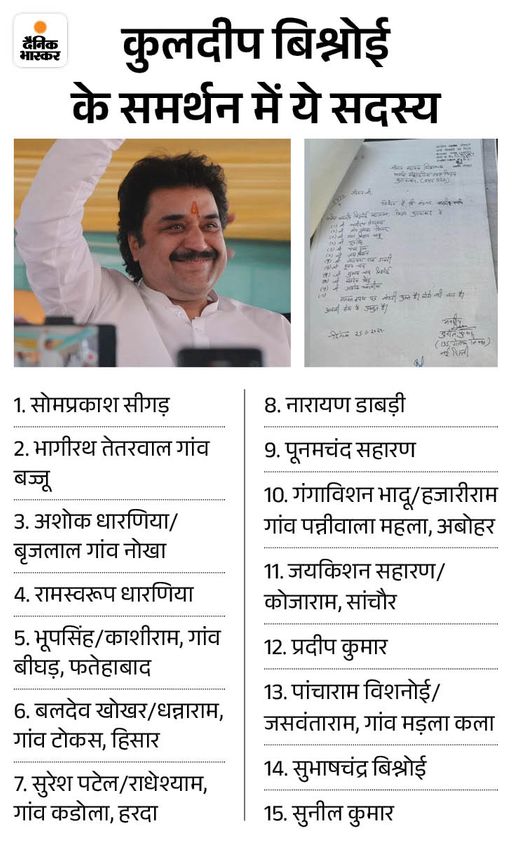 दैनिक
भास्कर
कुलदीप बिश्नोई
के समर्थन में ये सदस्य
1. सोमप्रकाश सीगड़
2. भागीरथ तेतरवाल गांव
बज्जू
3. अशोक धारणिया/
बृजलाल गांव नोखा
4. रामस्वरूप धारणिया
5. भूपसिंह/काशीराम, गांव
बीघड़, फतेहाबाद
6. बलदेव खोखर/धन्नाराम,
गांव टोकस, हिसार
7. सुरेश पटेल/राधेश्याम,
गांव कडोला, हरदा
8. नारायण डाबड़ी
9. पूनमचंद सहारण
10. गंगाविशन भादू/हजारीराम
गांव पन्नीवाला महला, अबोहर
11. जयकिशन सहारण/
कोजाराम, सांचौर
12. प्रदीप कुमार
13. पांचाराम विशनोई/
जसवंताराम, गांव मड़ला कला
14. सुभाषचंद्र बिश्नोई
15. सुनील कुमार